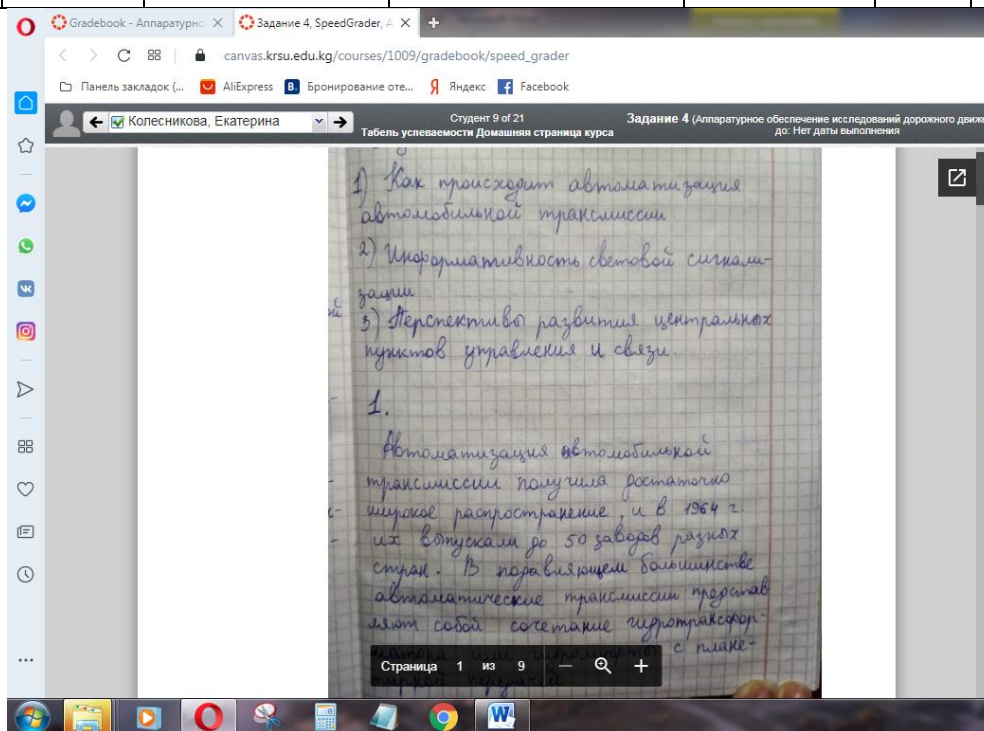 Gradebook - Аппаратурнс
Задание 4, SpeedGrader, А
canvas.krsu.edu.kg/courses/1009/gradebook/speed_grader
Панель закладок (...
AliExpress
B. Бронирование оте...
Я Яндекс
f Facebook
Колесникова, Екатерина
Студент 9 of 21
Табель успеваемости Домашняя страница курса
Задание 4 (Аппаратурное обеспечение исследований дорожного движе
до: Нет даты выполнения
1) Как происходит автоматизация
автомобильной трансмиссии
2) Информативность световой сигнали-
зации
3) Перспективы развития центральных
пунктов управления и связи.
1.
Автоматизация автомобильной
трансмиссии получила достаточно
широкое распространение, и в 1964 г.
их выпускали до 50 заводов разных
стран. В подавляющем большинстве
автоматические трансмиссии представ
ляют собой сочетание гидротрансфор-
матора или гидромуфты с плане-
тарной передачей
Страница 1 из 9